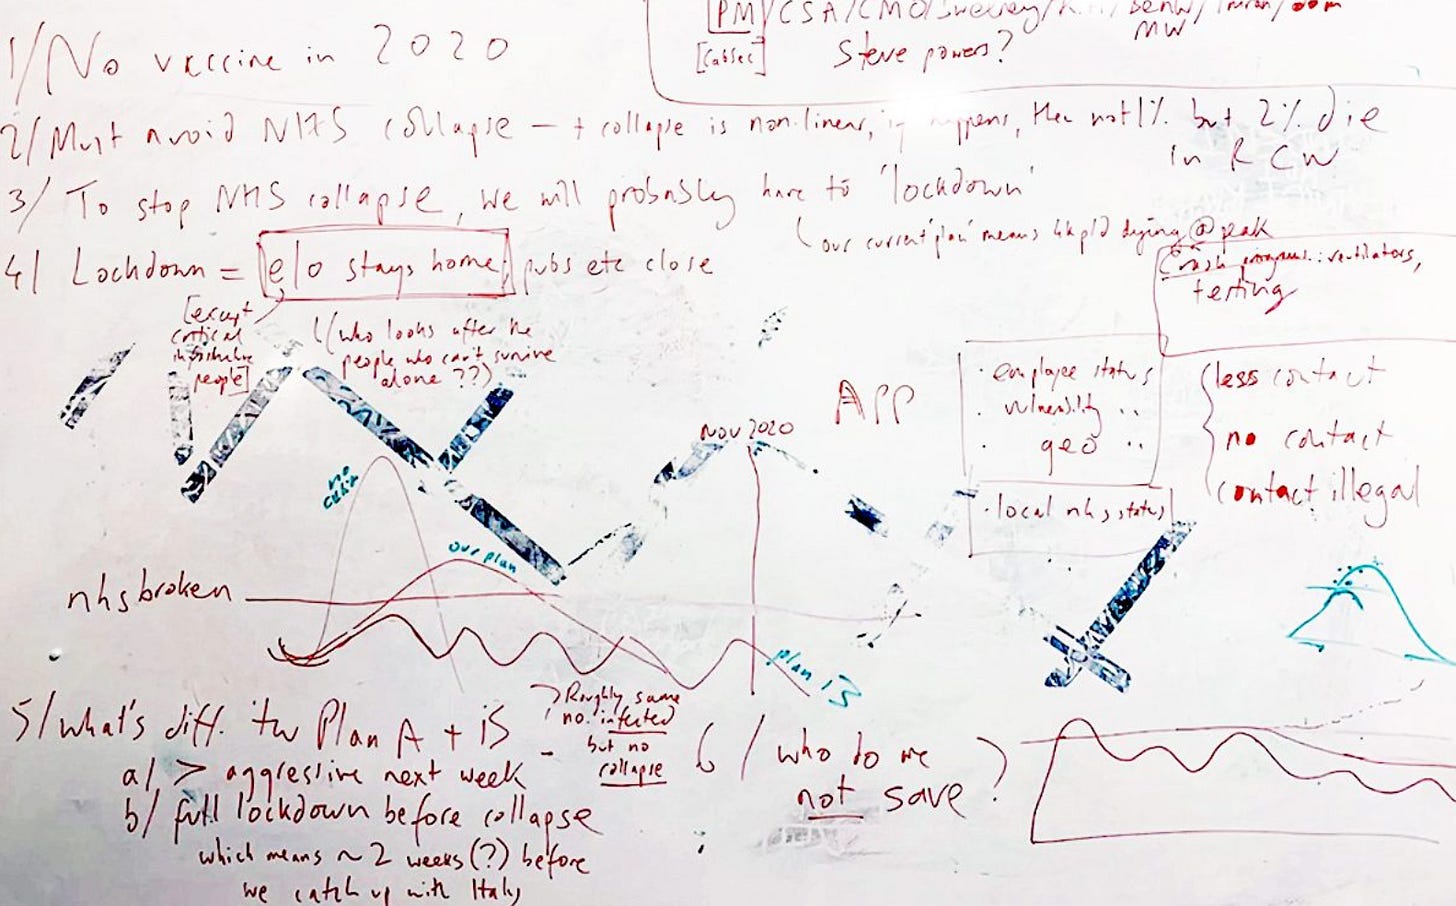 PM / CSA / CMO /
[Cabsec]
MW
Steve powers?
1/ No vaccine in 2020
2/ Must avoid NHS collapse – + collapse is non-linear, if happens, then not 1% but 2% die
in RCW
3/ To stop NHS collapse, we will probably have to 'lockdown'
our current 'plan' means 4k p/d dying @ peak
4/ Lockdown = e/o stays home, pubs etc close
Crash programs: ventilators,
testing
[except
critical
people]
(who looks after the
people who can't survive
alone ??)
APP
· employee status
· vulnerability ··
· geo ··
· local nhs status
less contact
no contact
contact illegal
Nov 2020
our plan
nhs broken
plan B
5/ what's diff. tw Plan A + B
a/ > aggressive next week
b/ full lockdown before collapse
which means ~ 2 weeks (?) before
we catch up with Italy
Roughly same
no. infected
but no
collapse
6/ who do we
not save?